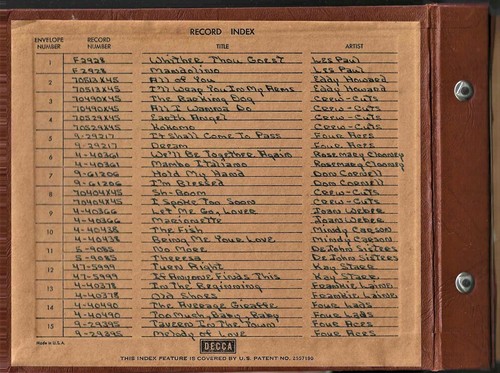 RECORD INDEX
ENVELOPE NUMBER RECORD NUMBER TITLE ARTIST
1 F2928 Whither Thou Goest Les Paul
F2928 Mandolino Les Paul
2 70513X45 All of You Eddy Howard
70513X45 I'll Wrap You In My Arms Eddy Howard
3 70490X45 The Barking Dog Crew-Cuts
70490X45 All I Wanna Do Crew-Cuts
4 70529X45 Earth Angel Crew-Cuts
70529X45 Kokomo Crew-Cuts
5 9-29217 It Shall Come To Pass Four Aces
9-29217 Dream Four Aces
6 4-40361 We'll Be Together Again Rosemary Clooney
4-40361 Mambo Italiano Rosemary Clooney
7 9-61206 Hold My Hand Don Cornell
9-61206 I'm Blessed Don Cornell
8 70404X45 Sh-Boom Crew-Cuts
70404X45 I Spoke Too Soon Crew-Cuts
9 4-40366 Let Me Go, Lover Joan Weber
4-40366 Marionette Joan Weber
10 4-40438 The Fish Mindy Carson
4-40438 Bring Me Your Love Mindy Carson
11 S-9085 No More DeJohn Sisters
S-9085 Theresa DeJohn Sisters
12 47-5999 Turn Right Kay Starr
47-5999 If Anyone Finds This Kay Starr
13 4-40378 In The Beginning Frankie Laine
4-40378 Old Shoes Frankie Laine
14 4-40490 The Average Giraffe Four Lads
4-40490 Too Much, Baby, Baby Four Lads
15 9-29395 Tavern In The Town Four Aces
9-29395 Melody of Love Four Aces
Made in U.S.A.
DECCA
THIS INDEX FEATURE IS COVERED BY U.S. PATENT NO. 2557180